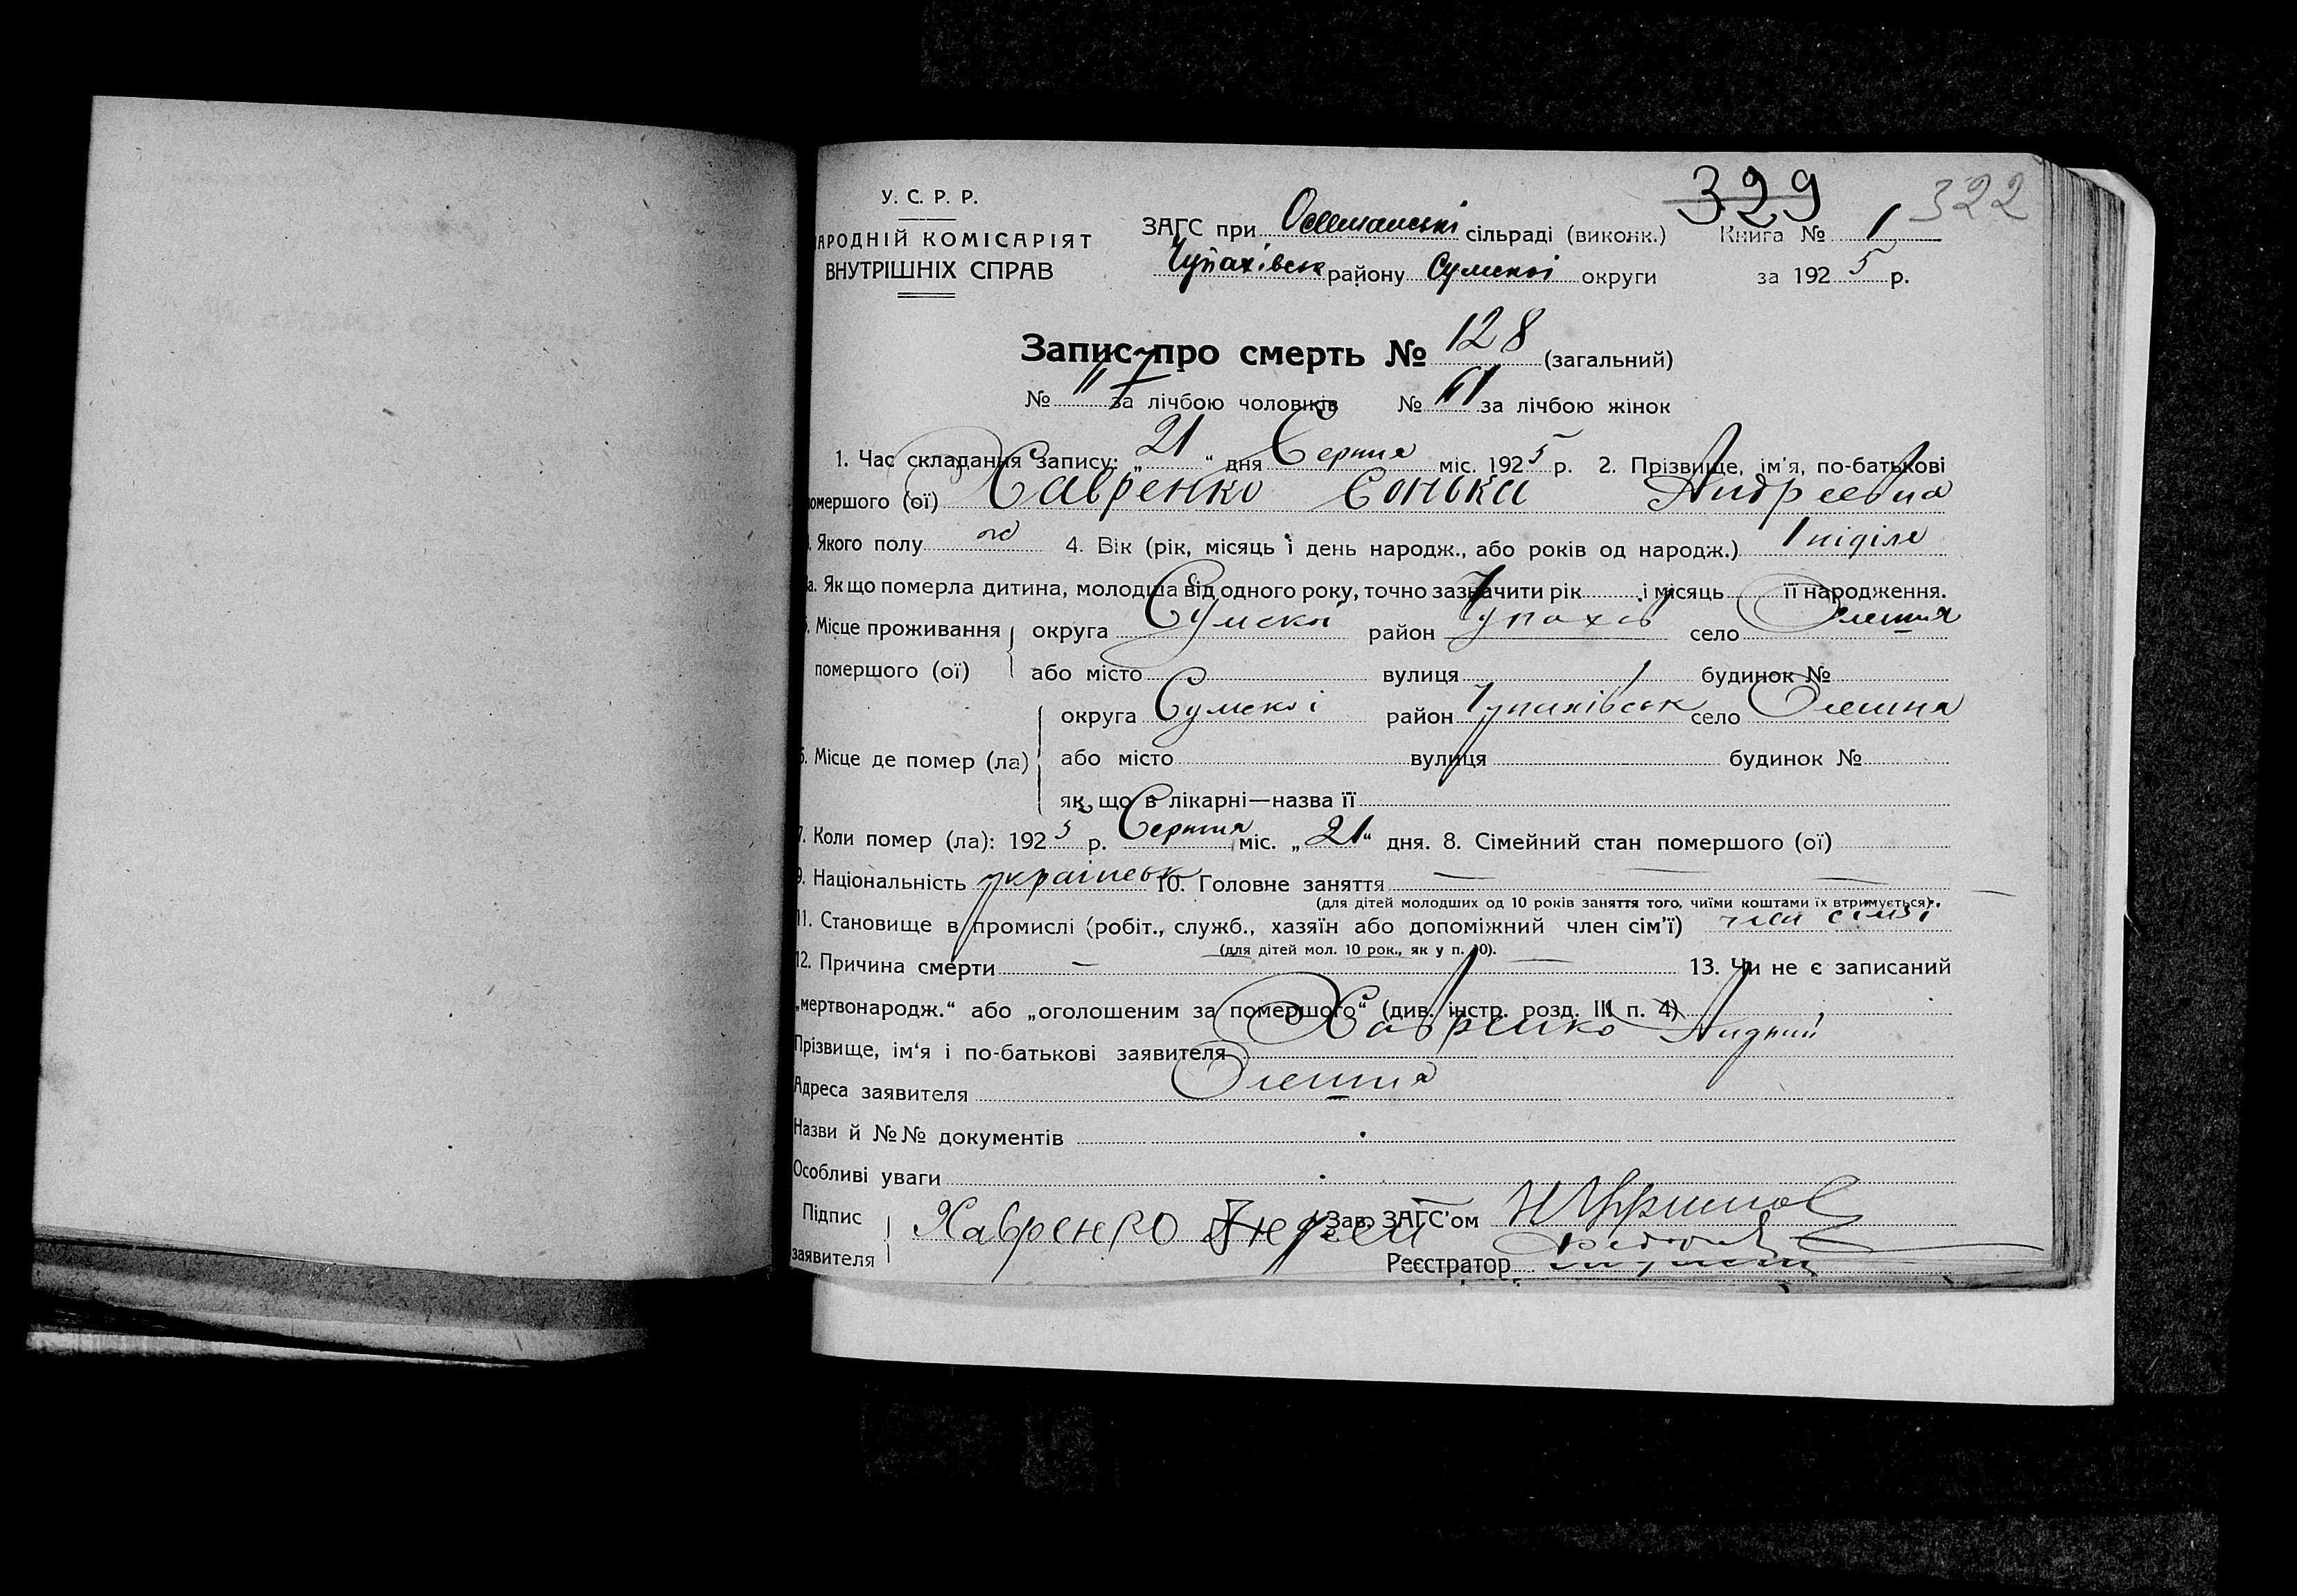 329 322
У. С. Р. Р.
АРОДНІЙ КОМІСАРІЯТ
ВНУТРІШНІХ СПРАВ
ЗАГС при сільраді (виконк.) Книга № 1
Чупахівськ району Сумської округи за 1925 р.
Запис про смерть № 128 (загальний)
№ за лічбою чоловіків № 61 за лічбою жінок
1. Час складання запису: „21“ дня Серпня міс. 1925 р. 2. Прізвище, ім'я, по-батькові
омершого (ої) Хавренко Сонька Андреевна
Якого полу ж 4. Вік (рік, місяць і день народж., або років од народж.) 1 неділя
а. Як що померла дитина, молодша від одного року, точно зазначити рік і місяць її народження.
Місце проживання округа Сумскої район Чупахів село Олешня
помершого (ої) або місто вулиця будинок №
округа Сумскої район Чупахівськ село Олешня
6. Місце де помер (ла) або місто вулиця будинок №
як що в лікарні—назва її
7. Коли помер (ла): 1925 р. Серпня міс. „21“ дня. 8. Сімейний стан помершого (ої)
9. Національність українськ 10. Головне заняття — — —
(для дітей молодших од 10 років заняття того, чиїми коштами їх втримується).
11. Становище в промислі (робіт., служб., хазяїн або допоміжний член сім'ї) член сімї
(для дітей мол. 10 рок., як у п. 10).
12. Причина смерти — — 13. Чи не є записаний
„мертвонародж.“ або „оголошеним за помершого“ (див. інстр. розд. III п. 4)
Прізвище, ім'я і по-батькові заявителя Хавренко Андрий
Адреса заявителя Олешня
Назви й №№ документів
Особливі уваги
Підпис заявителя Хавренко Андрей Зав. ЗАГС'ом
Реєстратор